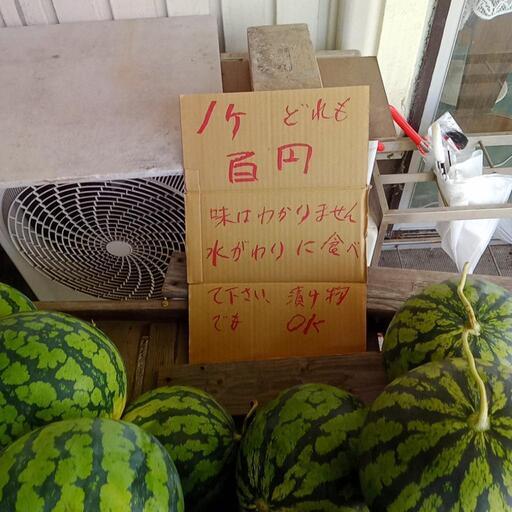 1ケ どれも
百円
味はわかりません
水がわりに食べ
て下さい、漬け物
でも OK